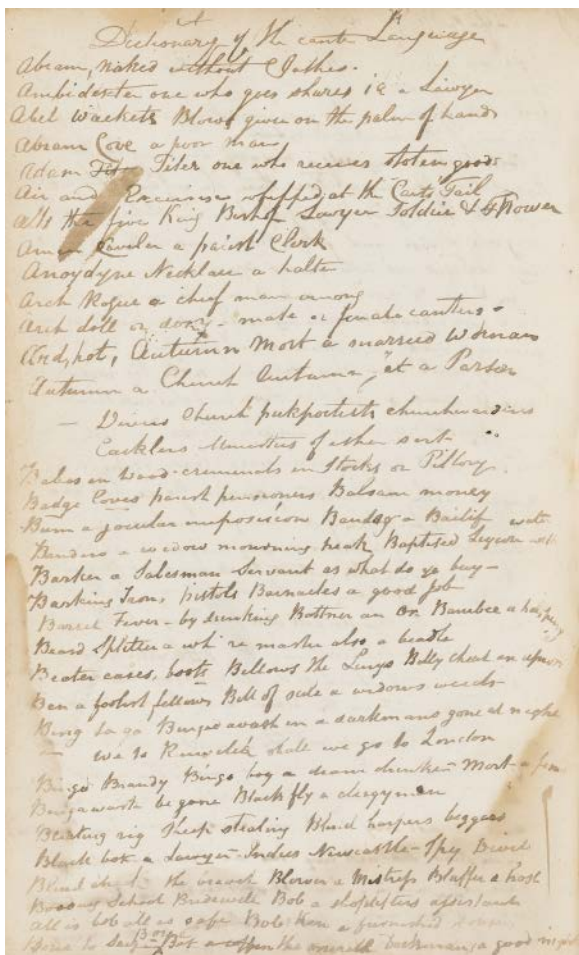 Dictionary of the cant Language
Abram, naked without Clothes.
Ambidexter one who goes shares in a Lawyer
Abel Wackets Blows given on the palm of hand
Abram Cove a poor man
Adam Tiler one who receives stolen goods
Air and Exercise whipped at the Carts Tail
Alls the five King Bishop Lawyer Soldier &
Amen Cawler a parish Clerk
Anoydyne Necklace a halter
Arch Rogue a chief man among
Arch doll or doxy - male or female canters -
Ard, hot, Autumn Mort a married woman
Autumn a Church Autumn, a Parson
- Divers Church pickpockets churchwardens
Cacklers Ministers of other sort
Babes in Wood - criminals in Stocks or Pillory
Badge Coves parish pensioners Balsam money
Bam a jocular imposition Bandog a Bailif
a widow mourning Baptised Liquor
Barker a Salesman Servant as what do ye buy -
Barking Irons, pistols Barnacles a good job
Barrel Fever - by drinking
Beard Splitter a wh re master also a beadle
Beater cases, boots Bellows the Lungs Belly cheat an apron
Ben a foolish fellow Bill of sale a widows weeds
Bing to go Binged avast in a darkmans gone at night
- we to Rumeville shall we go to London
Bingo Brandy Bingo boy a dram drinker - Mort - a
Bingawaste be gone Black fly a clergyman
Bleating rig Sheep stealing Blind harpers beggars
Black box a Lawyer - Indies Newcastle - Spy Devil
Blind cheeks the breech Blower a Mistress Bluffer a host
School Bridewell Bob a shoplifters assistant
all is bob all is safe Bob ken a furnished house
a good night